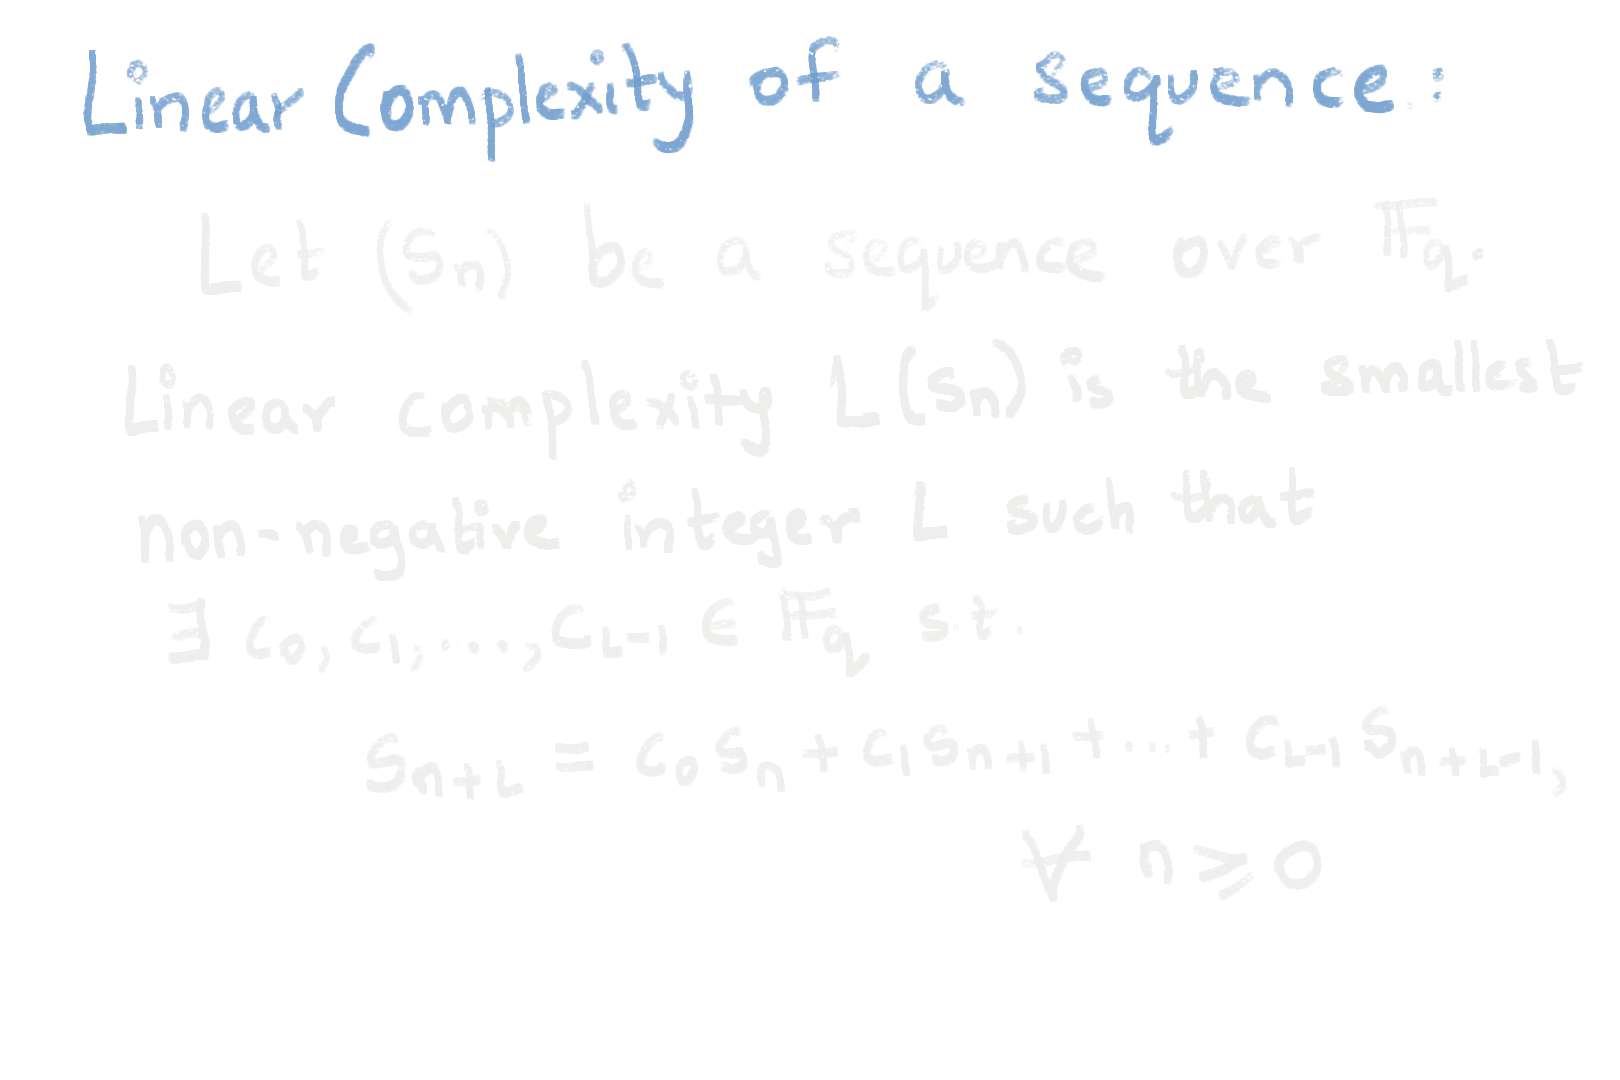 Linear Complexity of a sequence:
Let (Sₙ) be a sequence over 𝔽_q.
Linear complexity L(Sₙ) is the smallest
non-negative integer L such that
∃ c₀, c₁, ..., c_{L-1} ∈ 𝔽_q s.t.
S_{n+L} = c₀ Sₙ + c₁ S_{n+1} + ... + c_{L-1} S_{n+L-1},
∀ n ⩾ 0